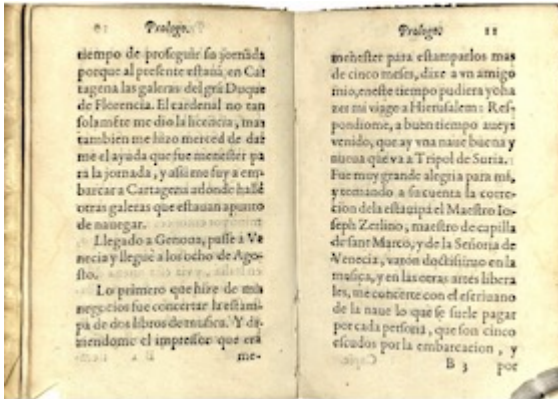 Prologo.
tiempo de proseguir su jornada
porque al presente estauã, en Car
tagena las galeras del grã Duque
de Florencia. El cardenal no tan
solamẽte me dio la licẽcia, mas
tambien me hizo merced de dar
me el ayuda que fue menester pa
ra la jornada, y assi me fuy a em-
barcar a Cartagena adonde hallé
otras galeras que estauan apunto
de nauegar.
Llegado a Genoua, passè a Ve
necia y lleguè a los ocho de Ago-
sto.
Lo primero que hize de mis
negocios fue concertar la estam-
pa de dos libros de musica. Y di-
ziendome el impressor que era
me-
Prologo. 11
menester para estamparlos mas
de cinco meses, dixe a vn amigo
mio, eneste tiempo pudiera yo ha
zer mi viage a Hierusalem: Res-
pondiome, a buen tiempo aueys
venido, que ay vna naue buena y
nueua que va a Tripol de Suria.
Fue muy grande alegria para mi,
y tomando a su cuenta la corre-
cion dela estãpa el Maestro Io-
seph Zerlino, maestro de capilla
de sant Marco, y de la Señoria de
Venecia, varon doctissimo en la
musica, y en las otras artes libera
les, me concerte con el escriuano
de la naue lo que se suele pagar
por cada persona, que son cinco
escudos por la embarcacion, y
B 3 por